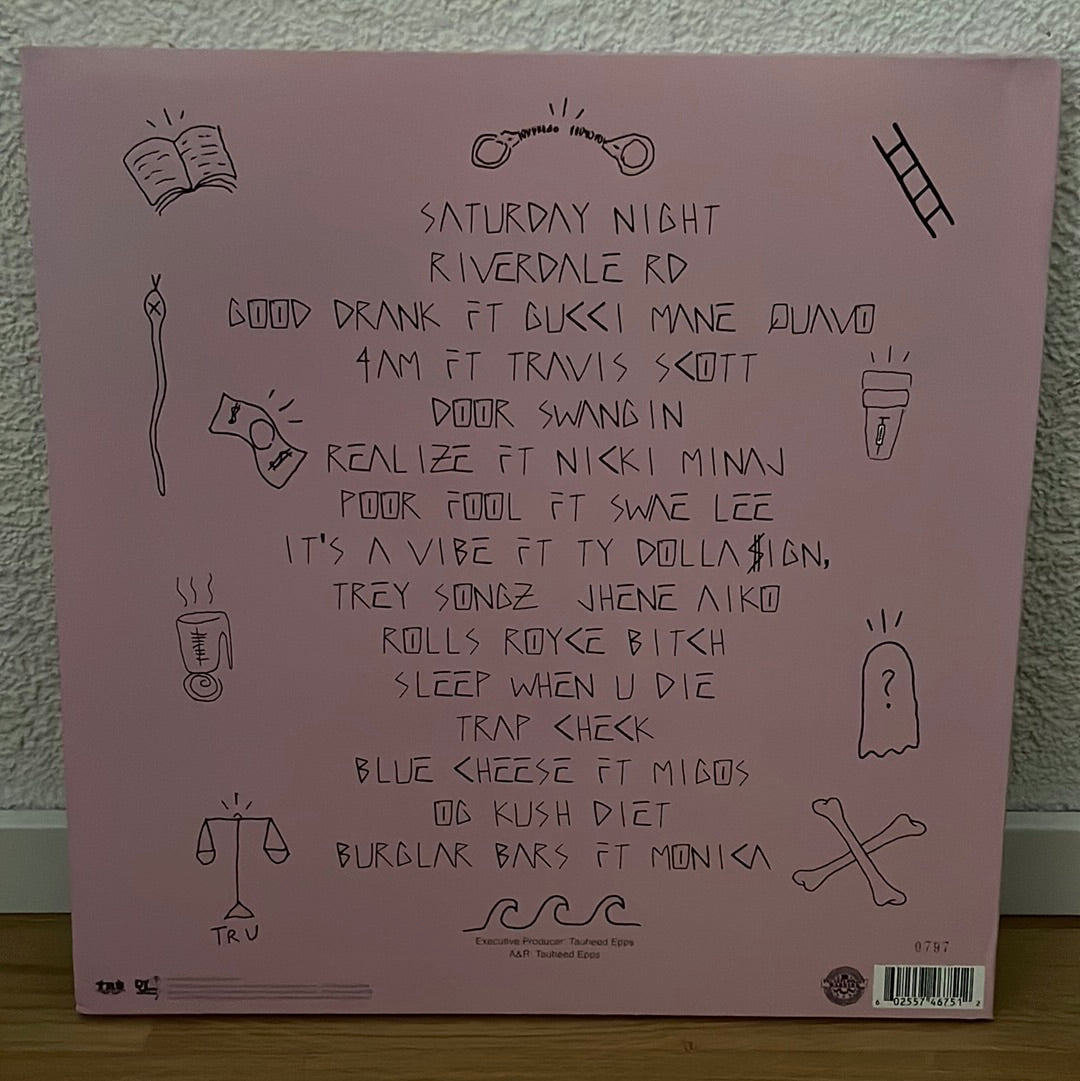 SATURDAY NIGHT
RIVERDALE RD
GOOD DRANK FT GUCCI MANE QUAVO
4AM FT TRAVIS SCOTT
DOOR SWANGIN
REALIZE FT NICKI MINAJ
POOR FOOL FT SWAE LEE
IT'S A VIBE FT TY DOLLA $IGN,
TREY SONGZ JHENE AIKO
ROLLS ROYCE BITCH
SLEEP WHEN U DIE
TRAP CHECK
BLUE CHEESE FT MIGOS
OG KUSH DIET
BURGLAR BARS FT MONICA
?
TRU
Executive Producer: Tauheed Epps
A&R: Tauheed Epps
0797
6 02557 46751 2